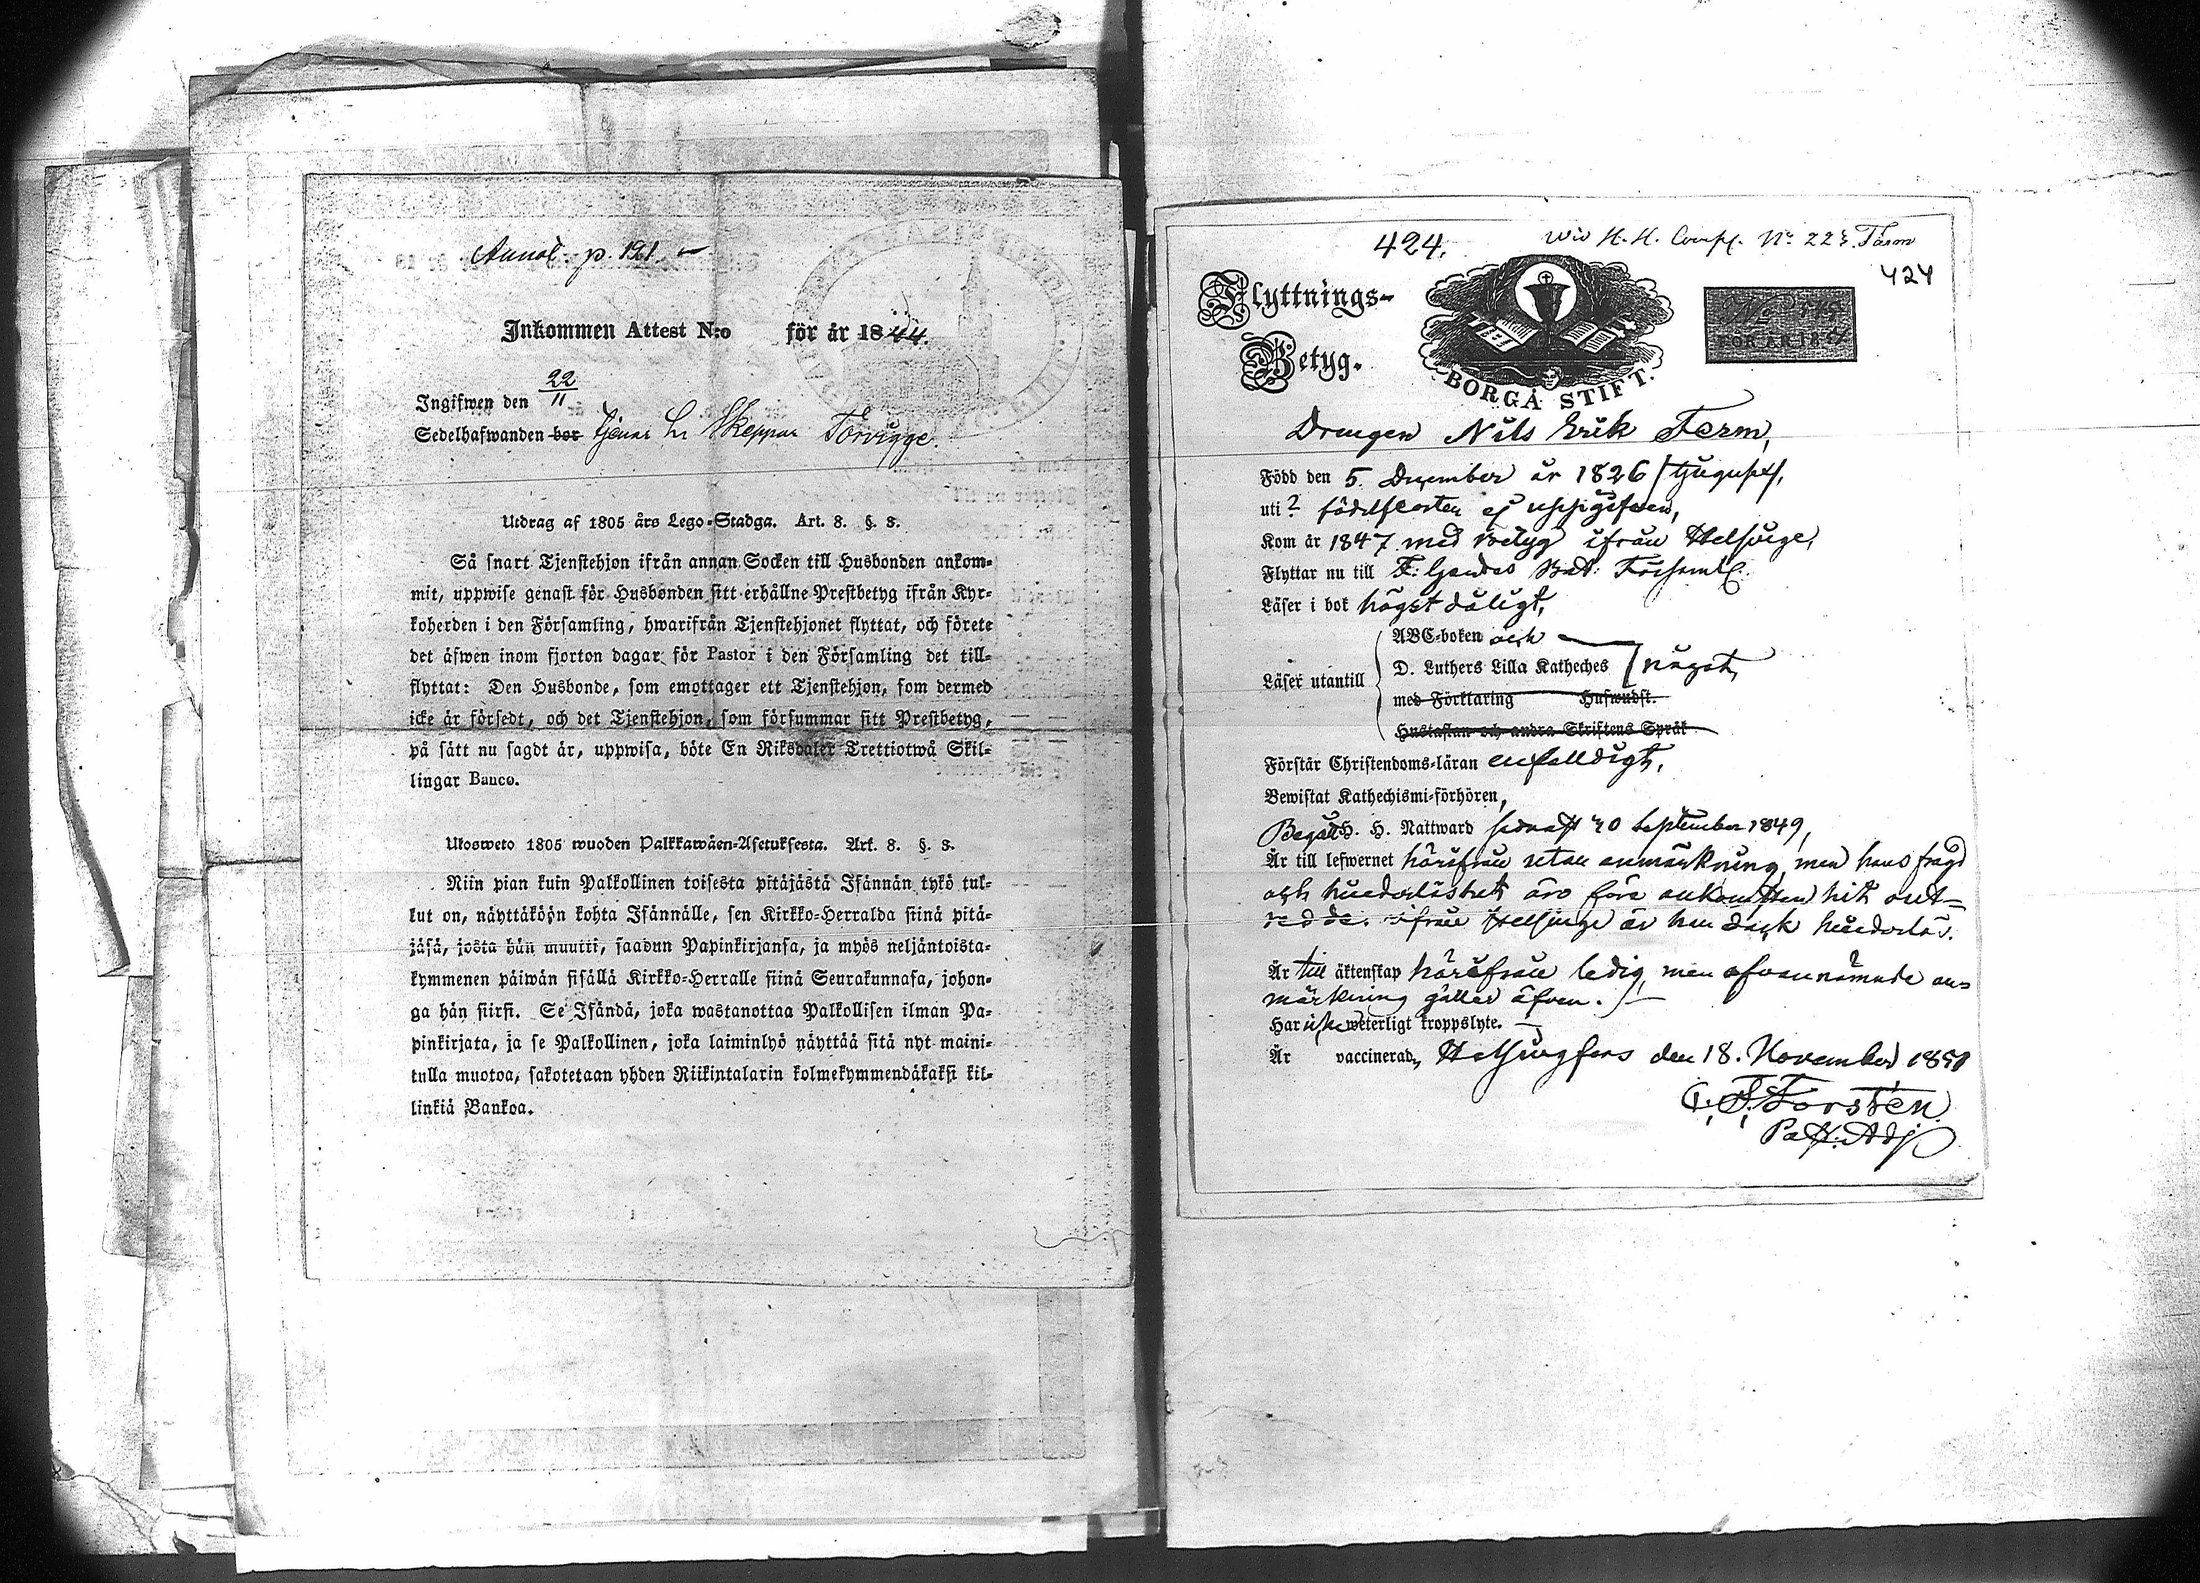 Annot. p. 191.
Inkommen Attest N:o för år 1844.
Ingifwen den 22/11
Sedelhafwanden bor tjenar hr Skeppar Torvigge.
Utdrag af 1805 års Lego-Stadga. Art. 8. §. 8.
Så snart Tjenstehjon ifrån annan Socken till Husbonden ankom-
mit, uppwise genast för Husbonden sitt erhållne Prestbetyg ifrån Kyr-
koherden i den Församling, hwarifrån Tjenstehjonet flyttat, och förete
det äfwen inom fjorton dagar för Pastor i den Församling det till-
flyttat: Den Husbonde, som emottager ett Tjenstehjon, som dermed
icke är försedt, och det Tjenstehjon, som försummar sitt Prestbetyg,
på sätt nu sagdt är, uppwisa, böte En Riksdaler Trettiotwå Skil-
lingar Banco.
Ulosweto 1805 wuoden Palkkawäen-Asetuksesta. Art. 8. §. 8.
Niin pian kuin Palkollinen toisesta pitäjästä Isännän tykö tul-
lut on, näyttäköön kohta Isännälle, sen Kirkko-Herralda siinä pitä-
jäsä, josta hän muutti, saadun Papinkirjansa, ja myös neljäntoista-
kymmenen päiwän sisällä Kirkko-Herralle siinä Seurakunnasa, johon-
ga hän siirsi. Se Isändä, joka wastanottaa Palkollisen ilman Pa-
pinkirjata, ja se Palkollinen, joka laiminlyö näyttää sitä nyt maini-
tulla muotoa, sakotetaan yhden Riikintalarin kolmekymmendäkaksi kil-
linkiä Bankoa.
424. Wid H. H. Comp. No 223. Färm
424
Flyttnings-
Betyg.
BORGÅ STIFT.
No
FÖR ÅR 18
Drängen Nils Erik Ferm,
Född den 5. December år 1826 /tjugusex/,
uti ? födelseorten ej uppgifven,
Kom år 1847 med betyg ifrån Helsinge,
Flyttar nu till F: Gardes Bat: Församl.
Läser i bok högst dåligt,
Läser utantill
ABC-boken och
D. Luthers Lilla Katheches något,
med Förklaring Hufwudst.
Hustaflan och andra Skriftens Språk
Förstår Christendoms-läran enfalldigt,
Bewistat Kathechismi-förhören,
Begått H. H. Nattward sednast 30 September 1849,
Är till lefwernet härifrån utan anmärkning, men hans frägd
och hinderlöshet äro före ankomsten hit out-
redde. ifrån Helsinge är han dock hinderlös.
Är till äktenskap härifrån ledig, men ofvannämnde an-
märkning gäller äfven.
Har icke weterligt kroppslyte.
Är vaccinerad, Helsingfors den 18. November 1851
C. F. Forstén
Past. Adj.